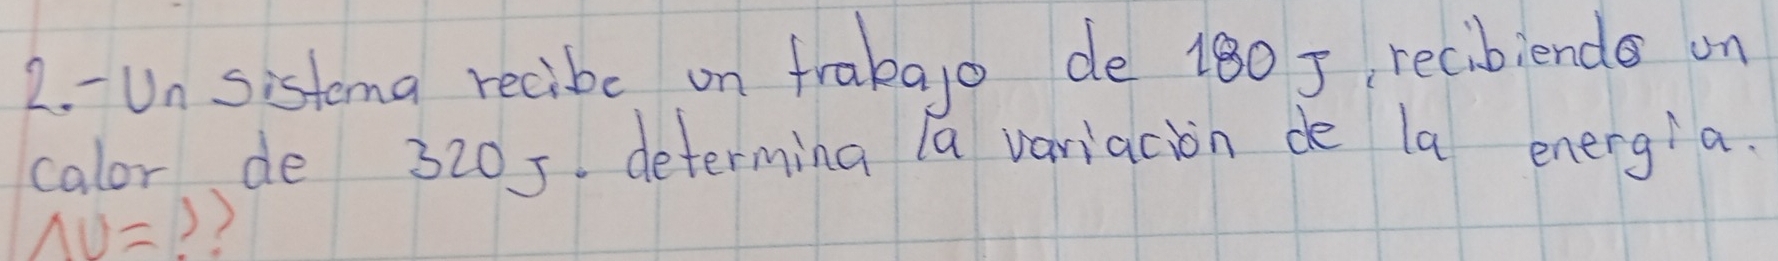 2.- Un sistema recibe un trabajo de 180 J, recibiendo un
calor de 320 J. determina la variación de la energía.
ΔU=??